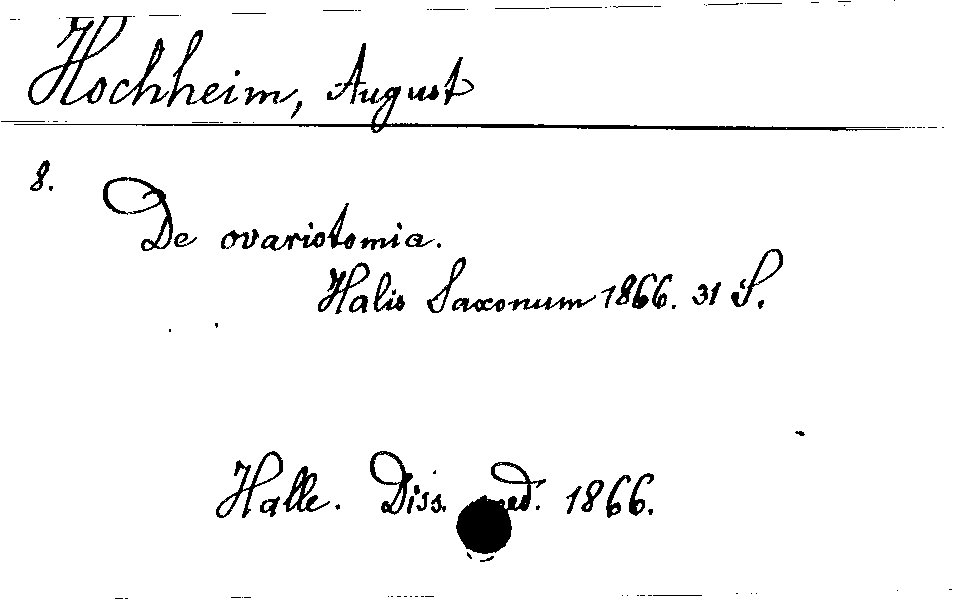 Hochheim, August
8.
De ovariotomia.
Halis Saxonum 1866. 31 S.
Halle. Diss. med. 1866.